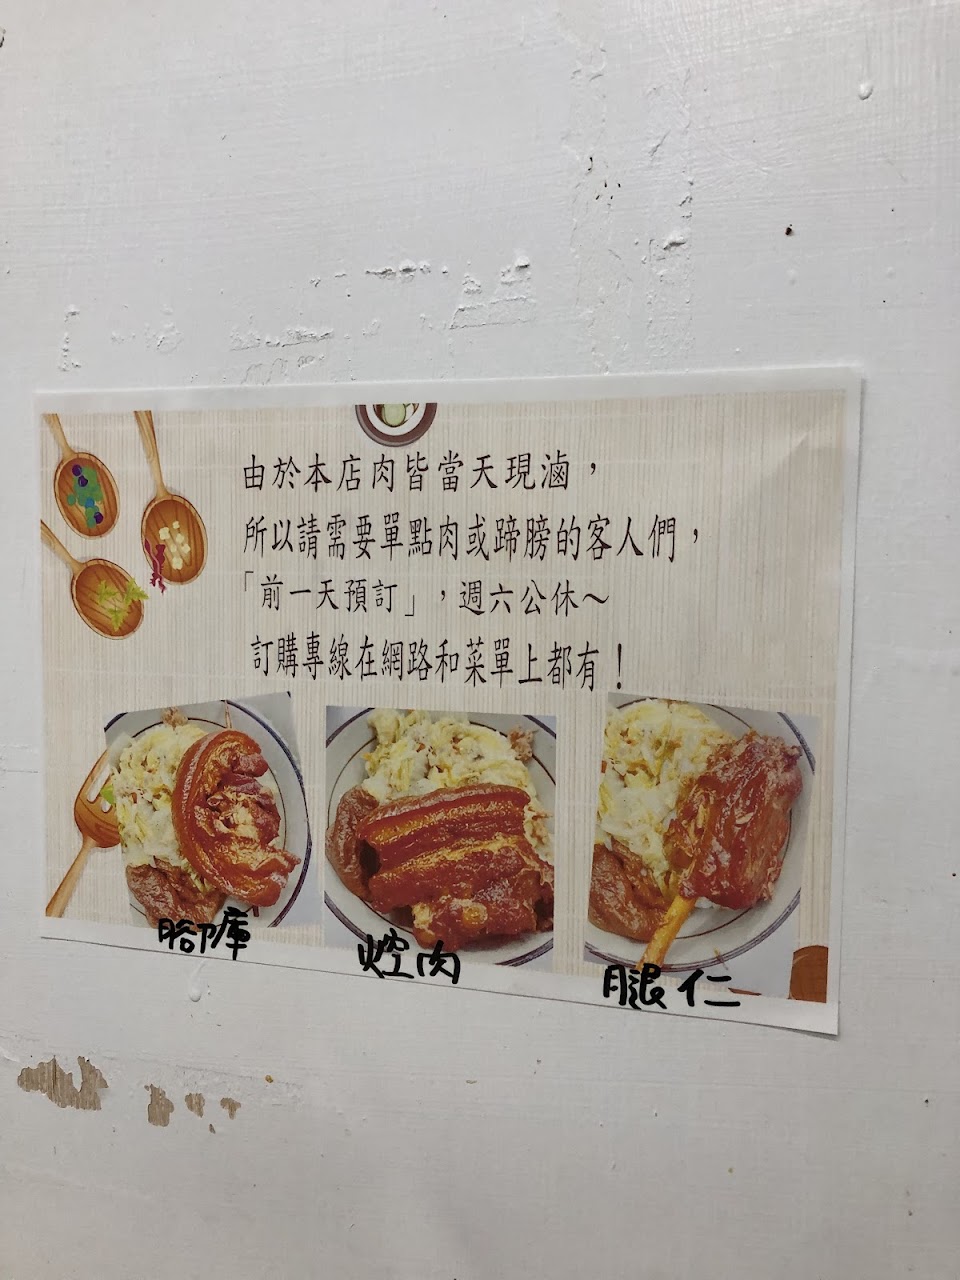 由於本店肉皆當天現滷，
所以請需要單點肉或蹄膀的客人們，
「前一天預訂」，週六公休～
訂購專線在網路和菜單上都有！
腳庫
焢肉
腿仁